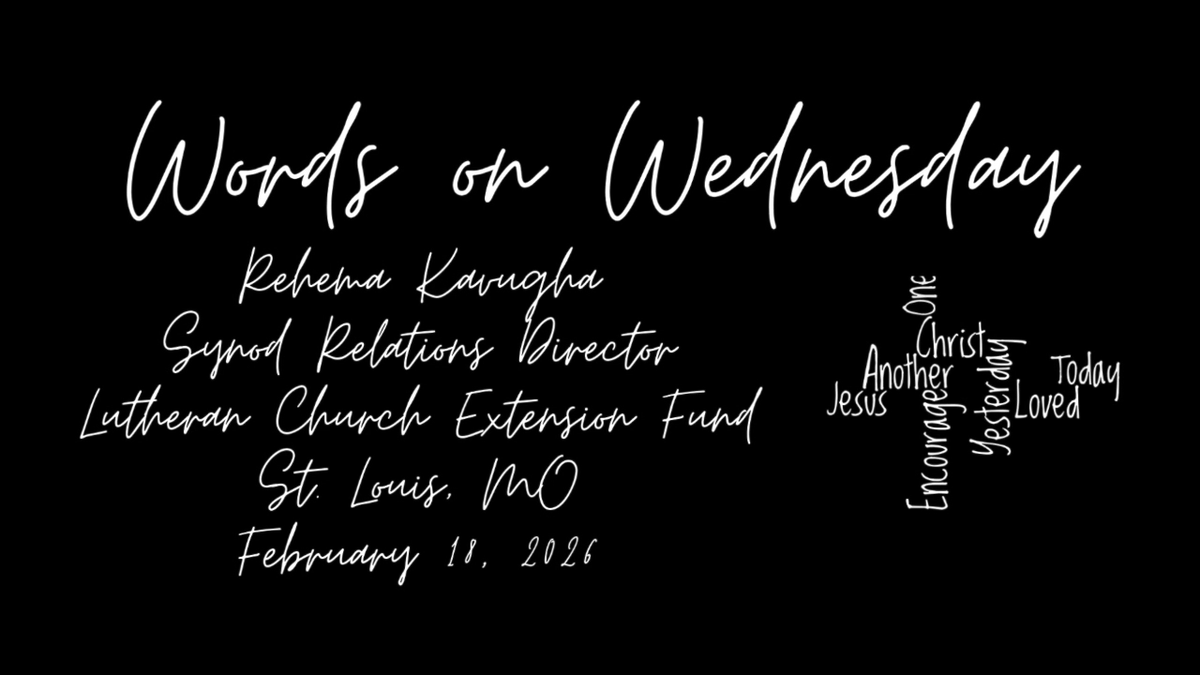 Words on Wednesday
Rehema Kavugha
Synod Relations Director
Lutheran Church Extension Fund
St. Louis, MO
February 18, 2026
One
Christ
Another
Jesus
Encourager
Yesterday
Today
Loved